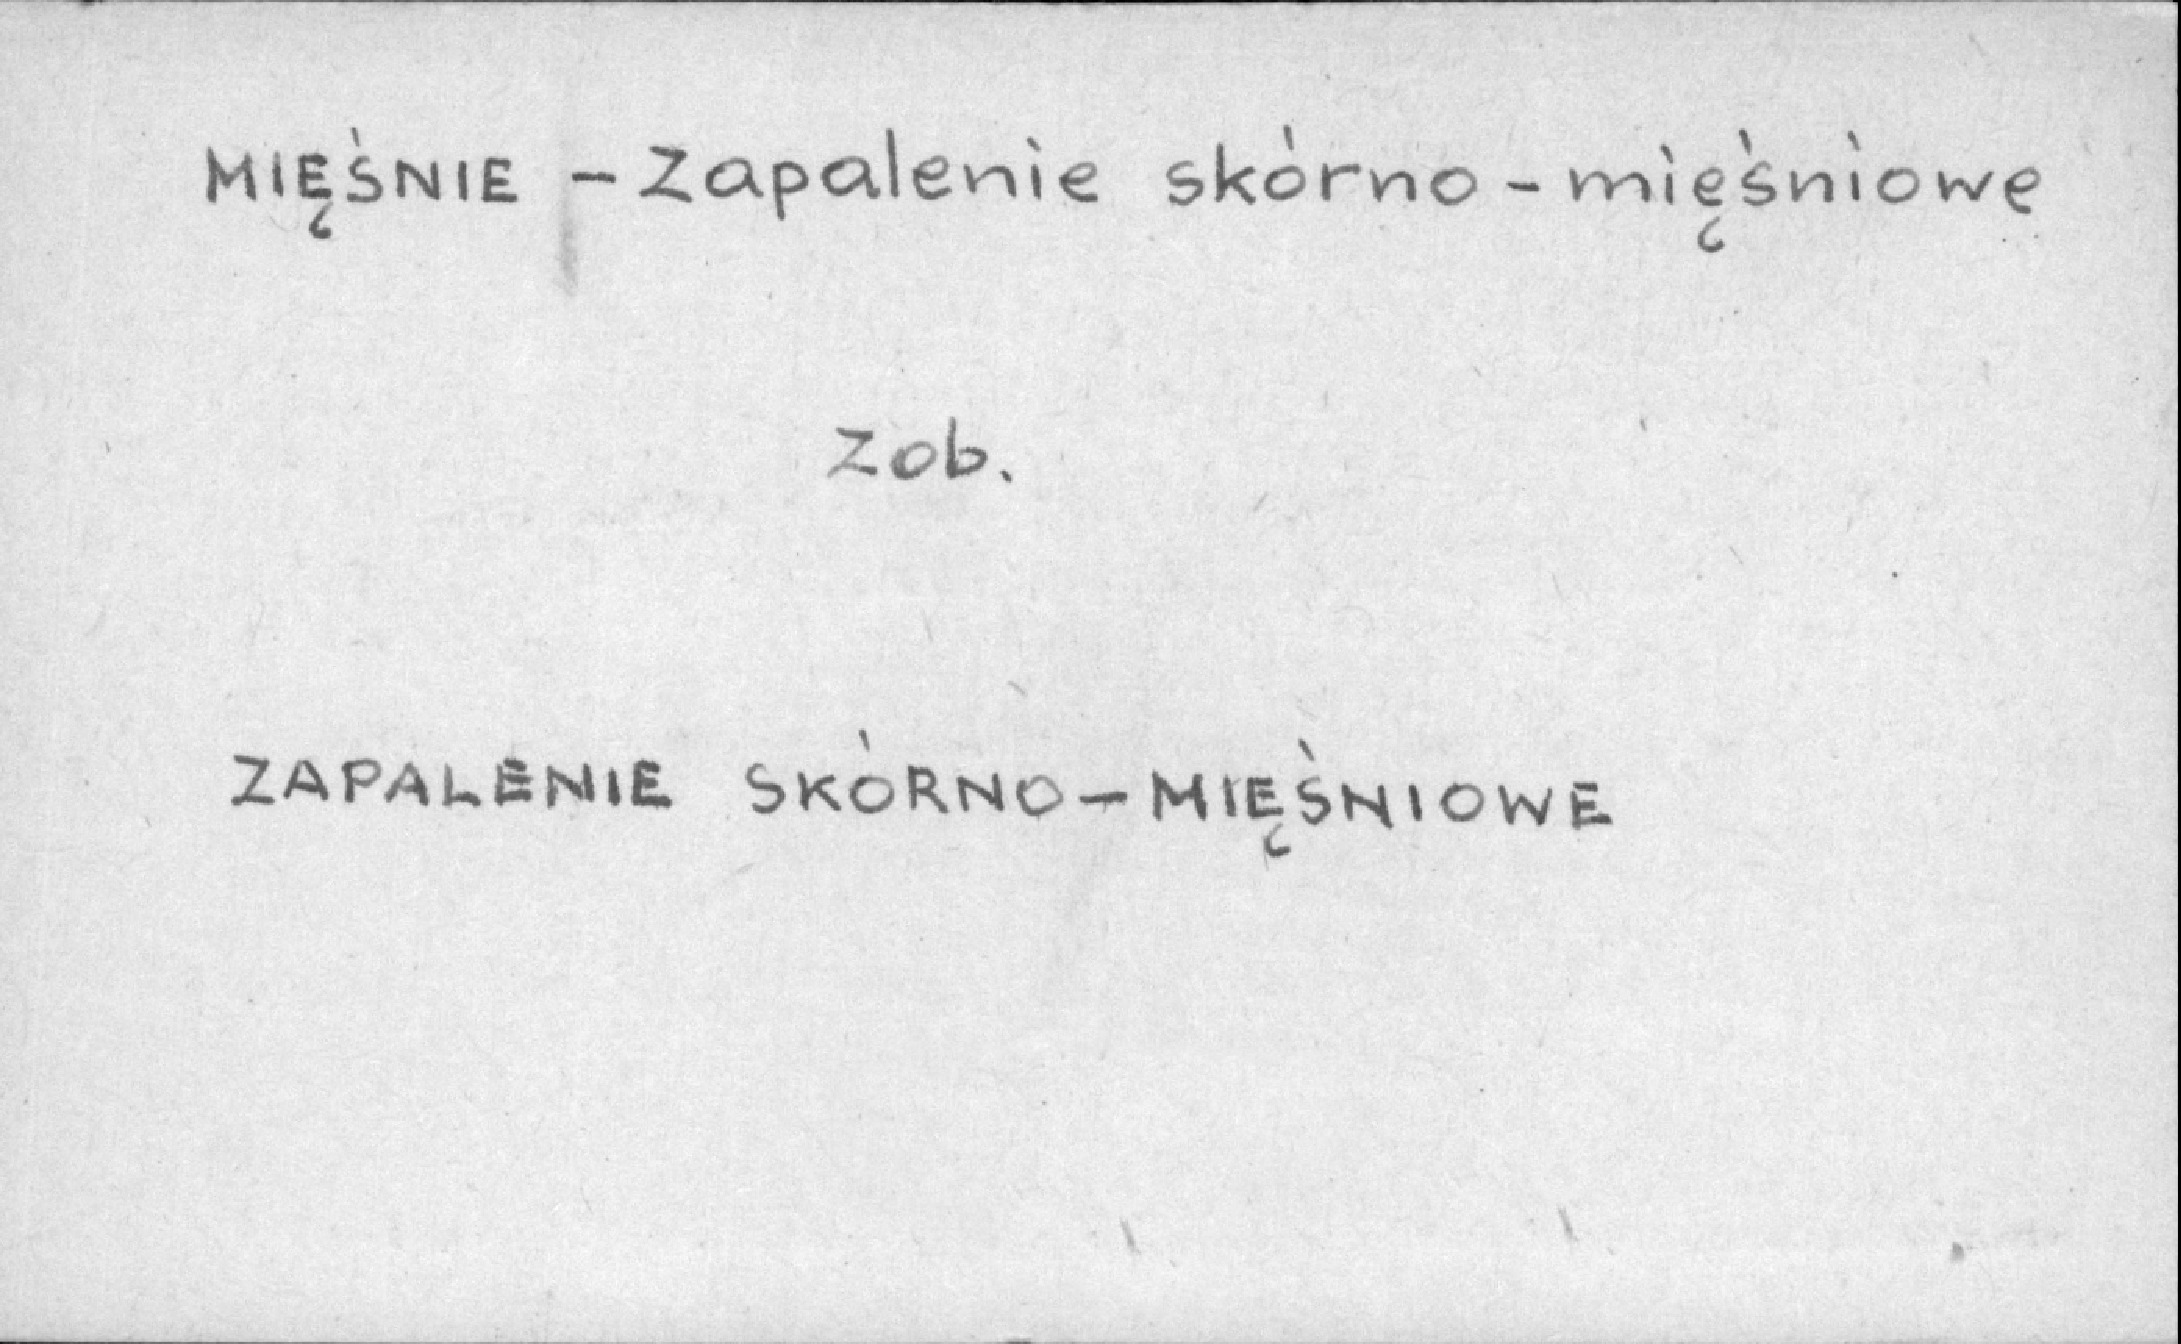 MIĘŚNIE - Zapalenie skórno-mięśniowe
Zob.
ZAPALENIE SKÓRNO-MIĘŚNIOWE